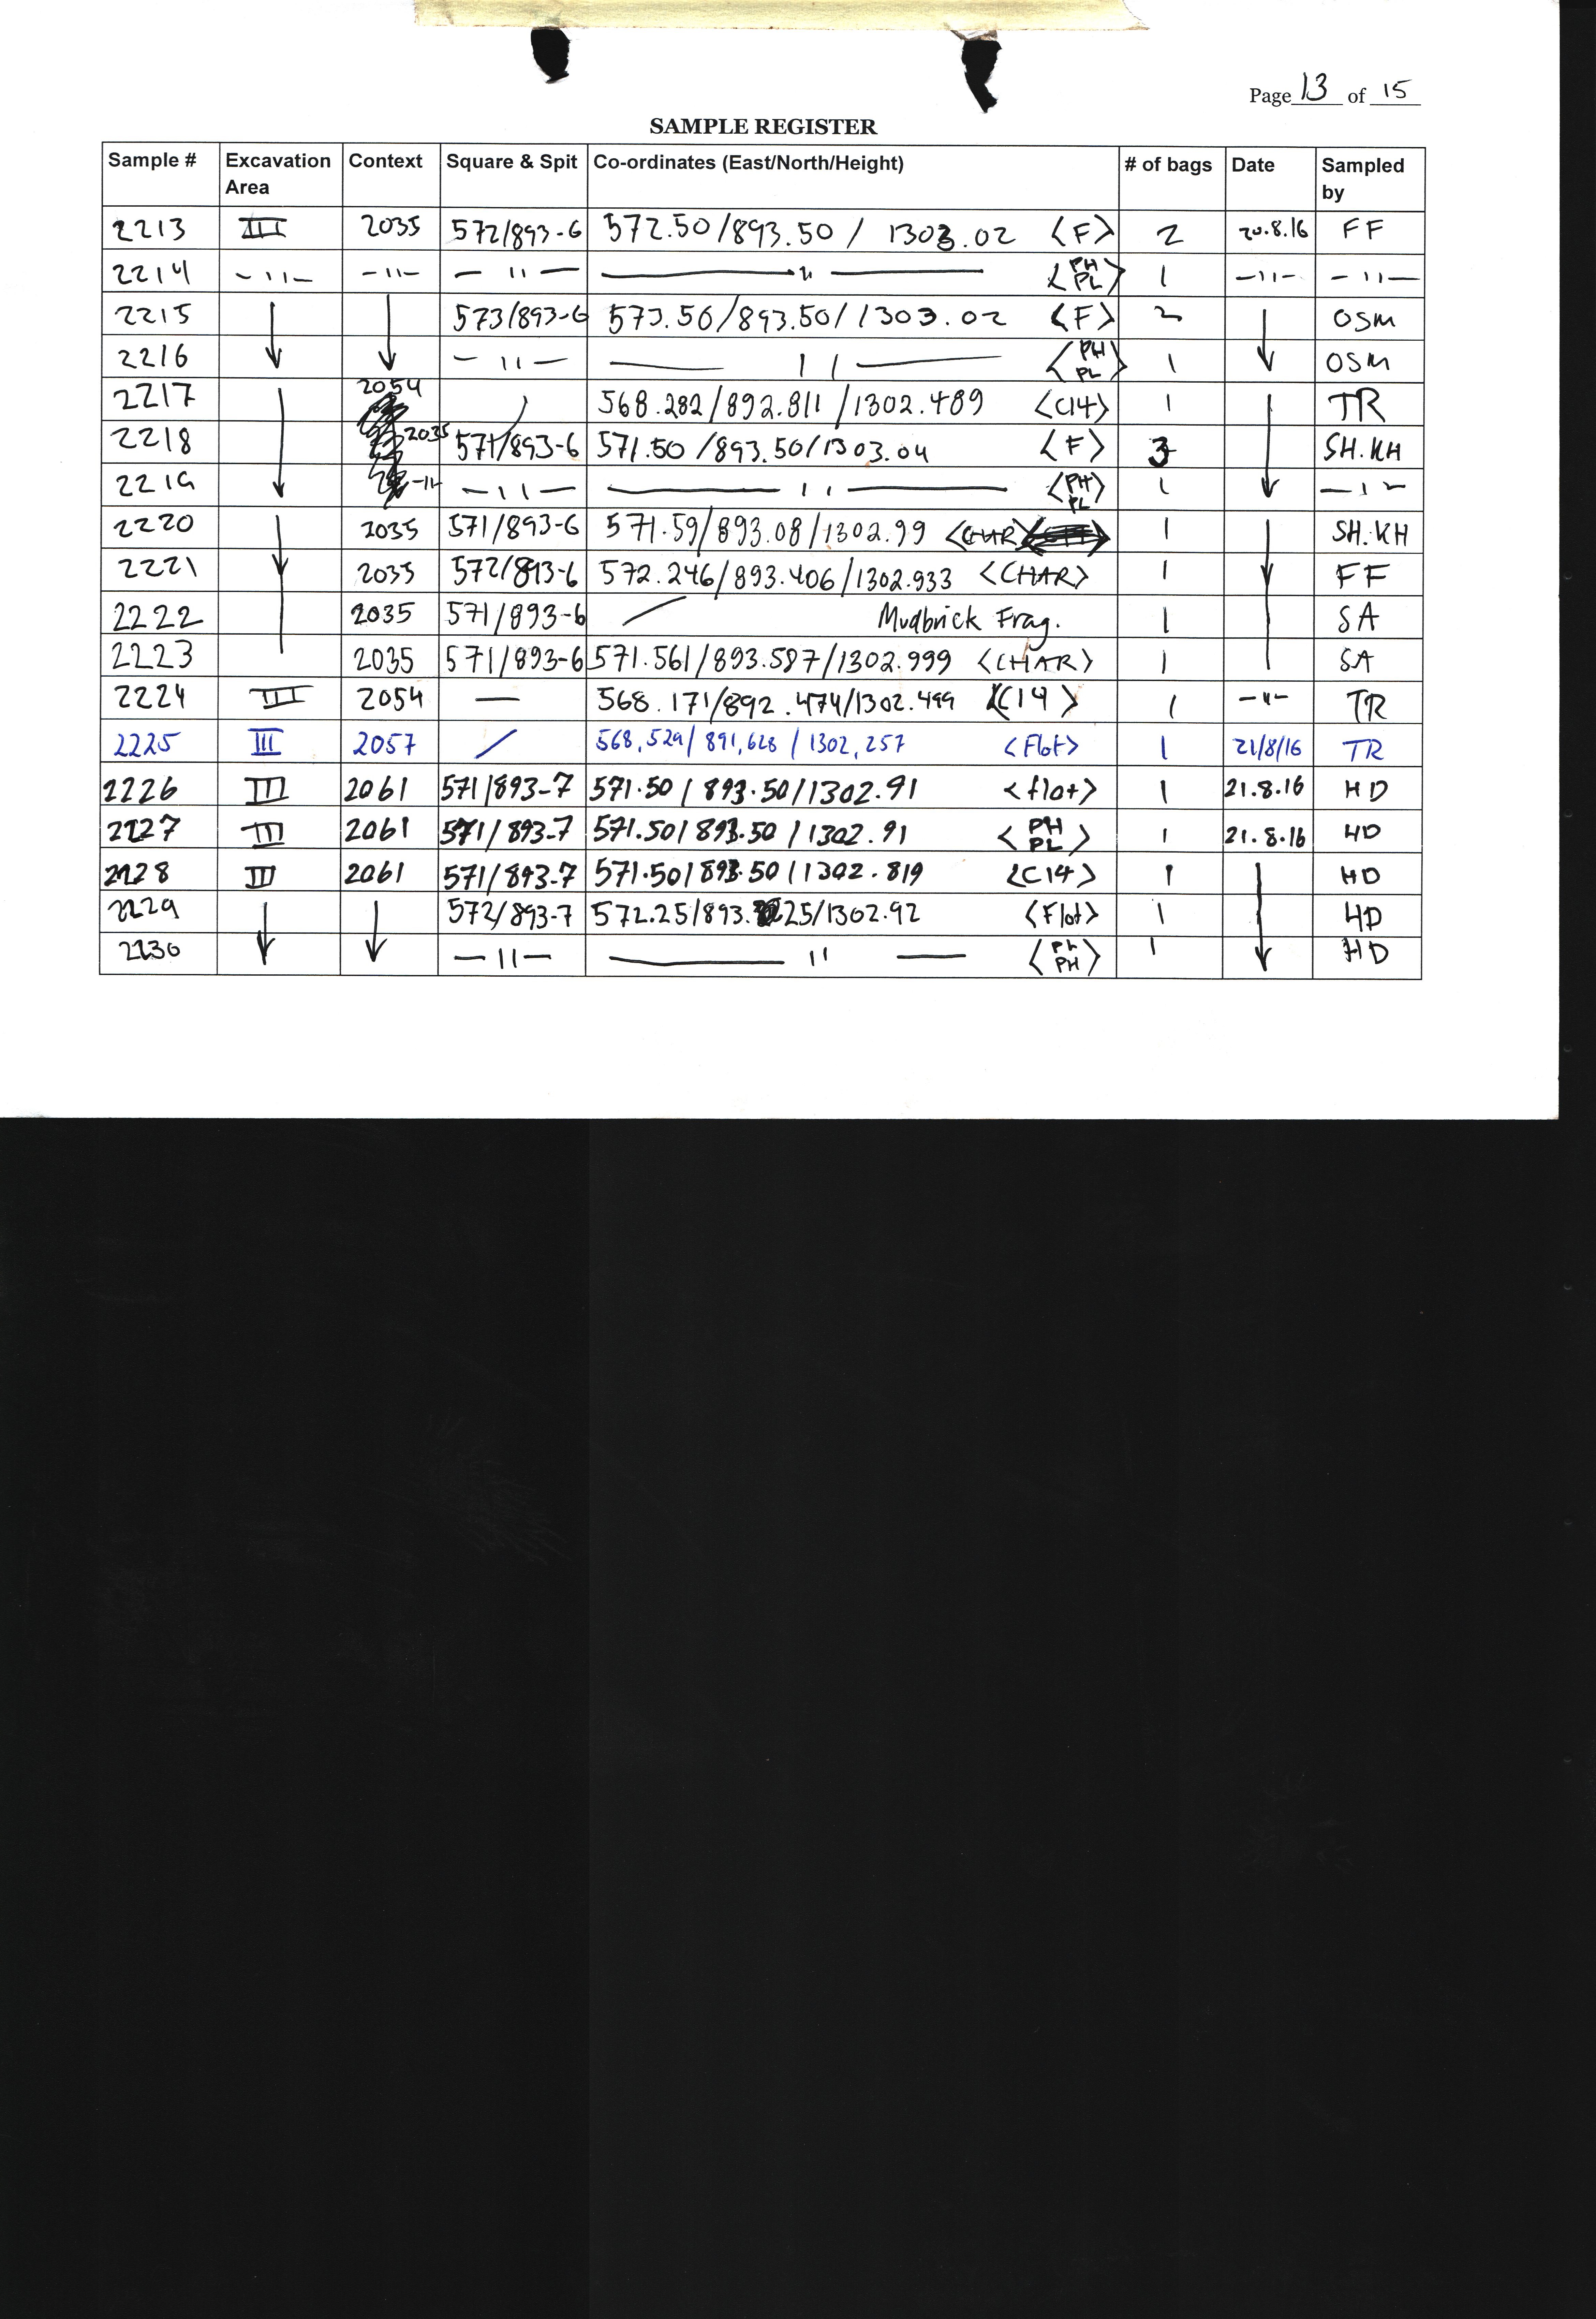 Page 13 of 15
SAMPLE REGISTER
Sample # Excavation Area Context Square & Spit Co-ordinates (East/North/Height) # of bags Date Sampled by
2213 III 2035 572/893-6 572.50/893.50 / 1303.02 <F> 2 20.8.16 FF
2214 -11- -11- - 11 - - 11 - <PH PL> 1 -11- - 11 -
2215 573/893-6 573.50/893.50/1303.02 <F> 2 OSM
2216 - 11 - - 11 - <PH PL> 1 OSM
2217 2054 / 568.282/892.811/1302.489 <C14> 1 TR
2218 2035 571/893-6 571.50/893.50/1303.04 <F> 3 SH.KH
2219 -11- - 11 - - 11 - <PH PL> 1 - 11 -
2220 2035 571/893-6 571.59/893.08/1302.99 <CHAR> 1 SH.KH
2221 2035 572/893-6 572.246/893.406/1302.933 <CHAR> 1 FF
2222 2035 571/893-6 / Mudbrick Frag. 1 SA
2223 2035 571/893-6 571.561/893.587/1302.999 <CHAR> 1 SA
2224 III 2054 — 568.171/892.474/1302.499 <C14> 1 -11- TR
2225 III 2057 / 568,529/891,628/1302,257 <Flot> 1 21/8/16 TR
2226 III 2061 571/893-7 571.50/893.50/1302.91 <flot> 1 21.8.16 HD
2227 III 2061 571/893-7 571.50/893.50/1302.91 <PH PL> 1 21.8.16 HD
2228 III 2061 571/893-7 571.50/893.50/1302.819 <C14> 1 HD
2229 572/893-7 572.25/893.25/1302.92 <Flot> 1 HD
2230 - 11 - - 11 - <PL PH> 1 HD